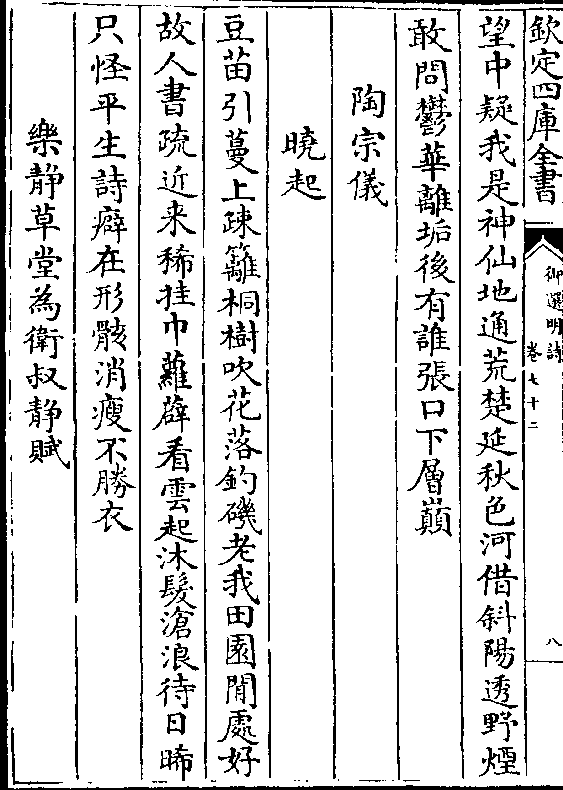 欽定四庫全書
御選明詩
卷七十二
八
望中疑我是神仙地通荒楚延秋色河借斜陽透野煙
敢問鬱華離垢後有誰張口下層巔
陶宗儀
曉起
豆苗引蔓上疎籬桐樹吹花落釣磯老我田園閒處好
故人書疏近来稀挂巾蘿薜看雲起沐髮滄浪待日晞
只怪平生詩癖在形骸消瘦不勝衣
樂静草堂為衛叔静賦